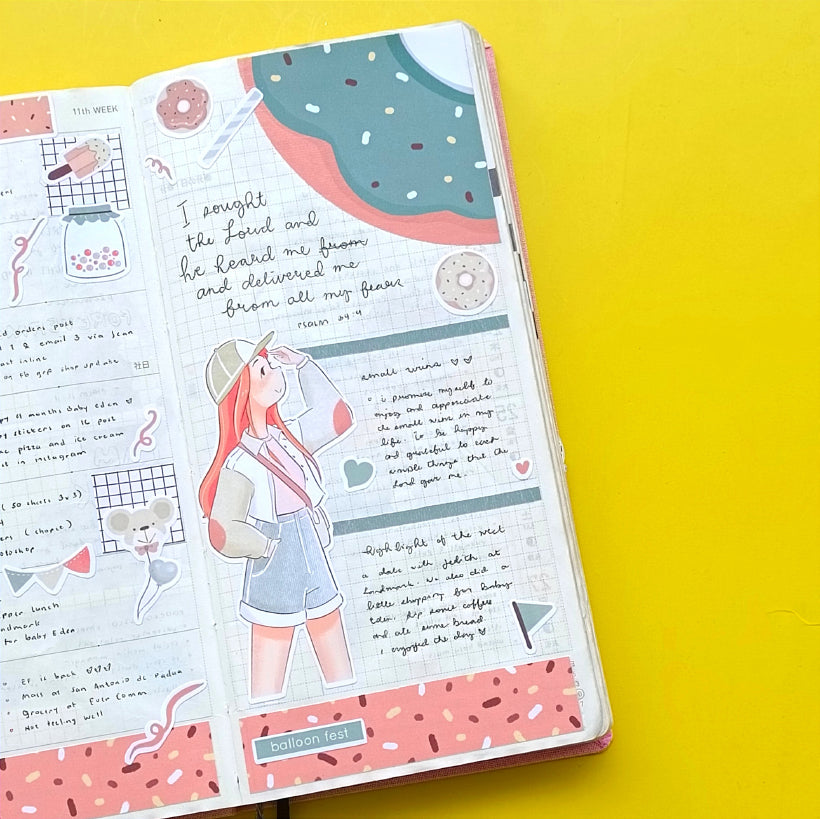 11th WEEK
orders post
& email 3 via
inline
on fb grp shop update
社日
11 months baby eden
stickers on 16 post
pizza and ice cream
in instagram
lunch
for baby Eden
EF is back
Mass at San Antonio de Padua
Grocery at Ever Comm
Not feeling well
I sought
the Lord and
he heard me from
and delivered me
from all my fears
PSALM 34:4
small wins
i promise myself to
enjoy and appreciate
the small wins in my
life. To be happy
and grateful to every
simple things that the
Lord gave me.
Highlight of the week
a date with Jedith at
landmark. We also did a
little shopping for Baby
Eden. Sip some coffee
and ate some bread.
I enjoyed the day
balloon fest